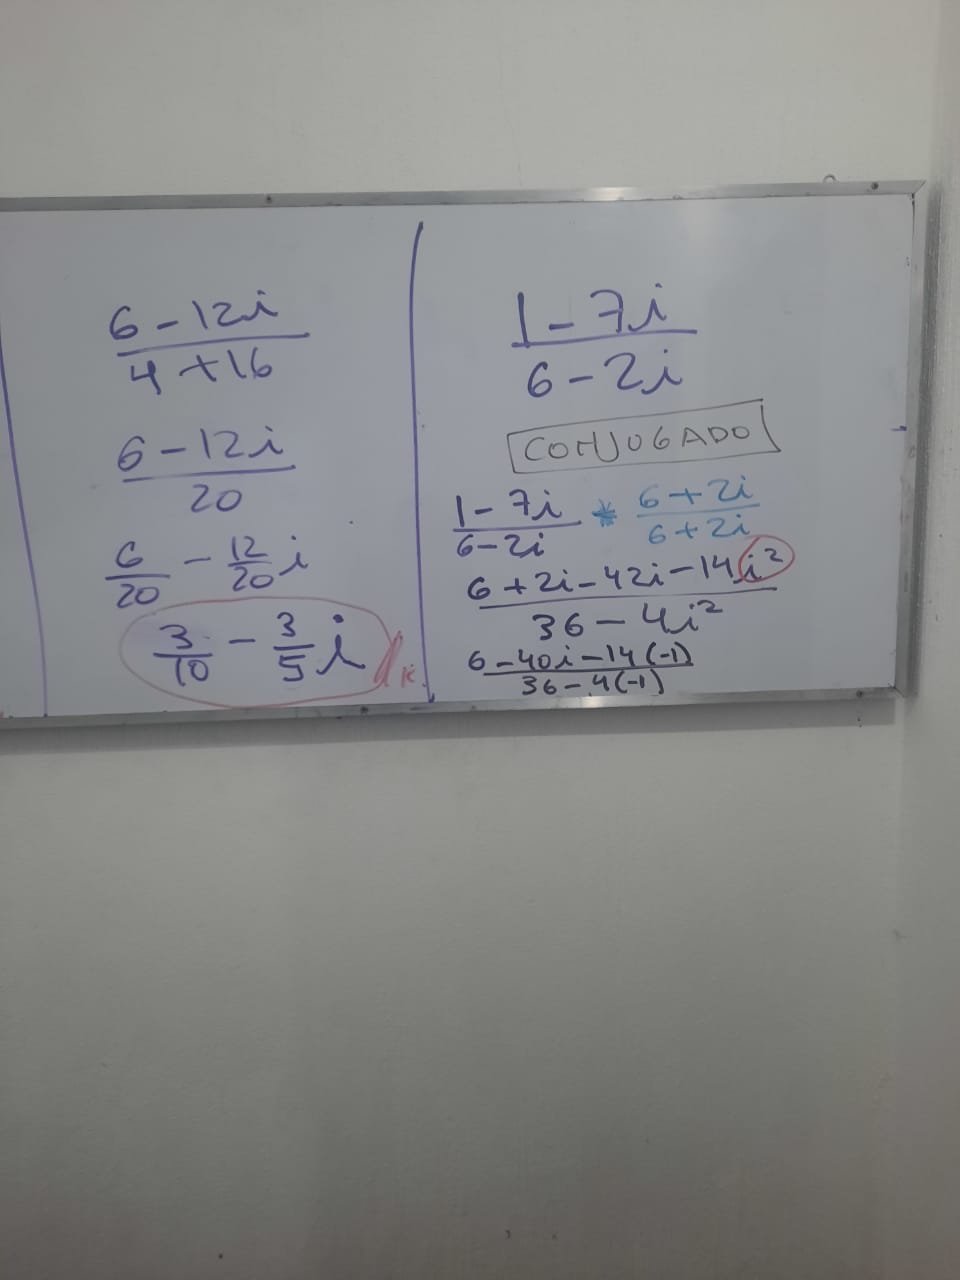 6 - 12i
4 + 16
6 - 12i
20
6/20 - 12/20 i
3/10 - 3/5 i
1 - 7i
6 - 2i
CONJUGADO
1 - 7i / 6 - 2i * 6 + 2i / 6 + 2i
6 + 2i - 42i - 14i²
36 - 4i²
6 - 40i - 14(-1)
36 - 4(-1)